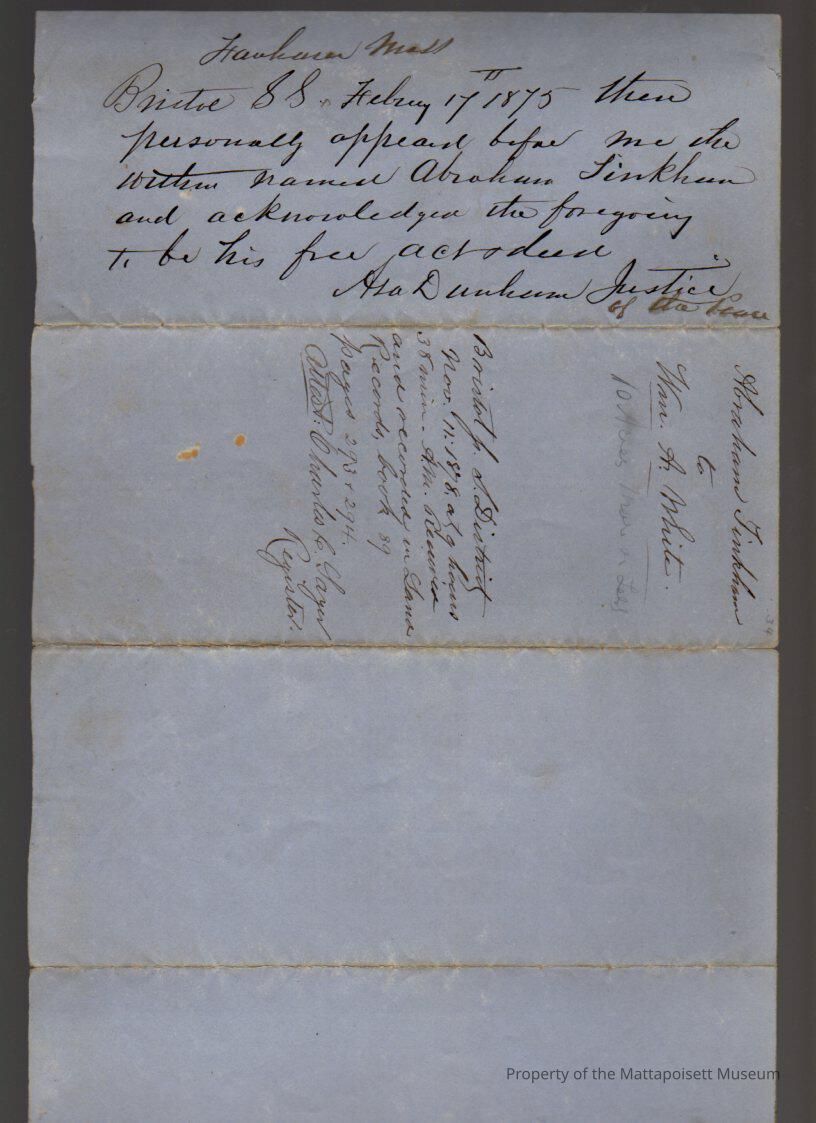 Fairhaven Mass
Bristol SS. Febuy 17th 1875 then
personally appeard before me the
within named Abraham Tinkham
and acknowledged the foregoing
to be his free act & deed
Asa Dunham Justice
of the Peace
Abraham Tinkham
to
Wm. A. White.
10 Acres More or Less
Bristol ss. S. District
Nov. 11. 1878, at 9 hours
38 min. A.M. Received
and recorded in Land
Records, book 89
pages 293 & 294.
Attest: Charles C. Sayer
Register.
34
Property of the Mattapoisett Museum